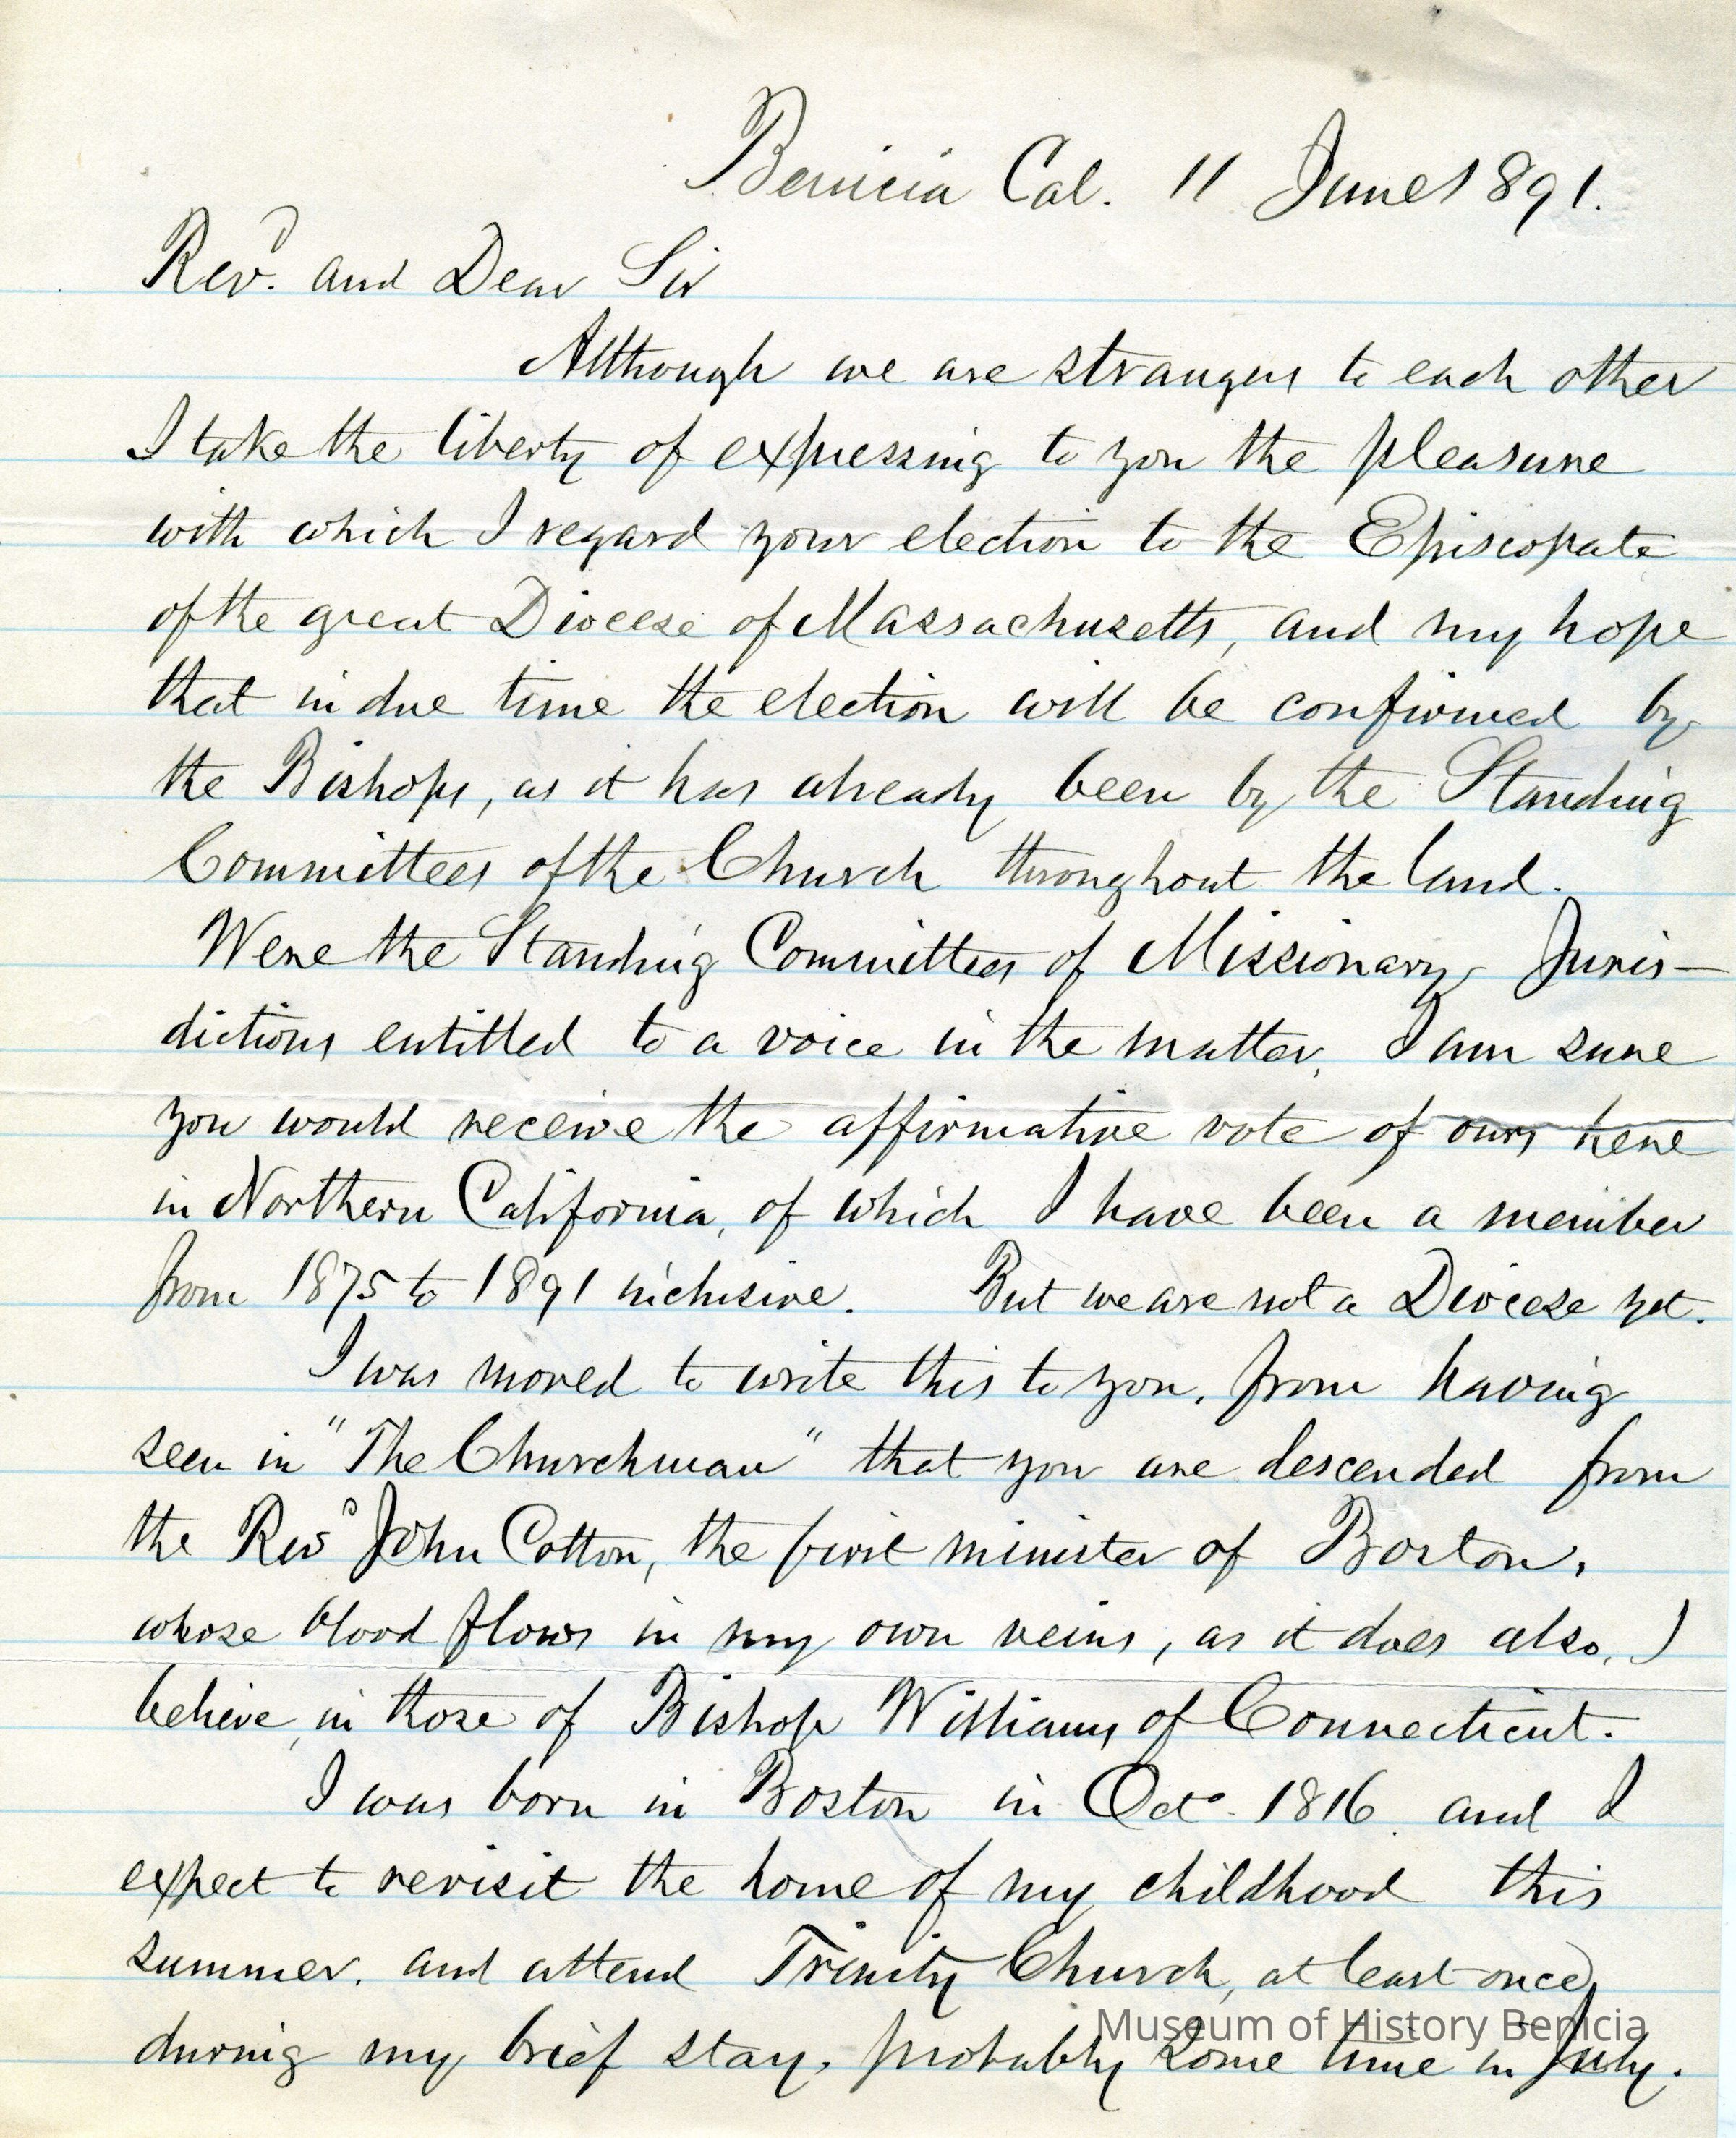 Benicia Cal. 11 June 1891.
Revd. and Dear Sir
Although we are strangers to each other
I take the liberty of expressing to you the pleasure
with which I regard your election to the Episcopate
of the great Diocese of Massachusetts, and my hope
that in due time the election will be confirmed by
the Bishops, as it has already been by the Standing
Committees of the Church throughout the land.
Were the Standing Committees of Missionary Juris-
dictions entitled to a voice in the matter, I am sure
you would receive the affirmative vote of ours here
in Northern California, of which I have been a member
from 1875 to 1891 inclusive. But we are not a Diocese yet.
I was moved to write this to you, from having
seen in "The Churchman" that you are descended from
the Revd John Cotton, the first minister of Boston,
whose blood flows in my own veins, as it does also, I
believe, in those of Bishop Williams of Connecticut.
I was born in Boston in Octo. 1816 and I
expect to revisit the home of my childhood this
summer, and attend Trinity Church, at least once,
during my brief stay, probably some time in July.
Museum of History Benicia